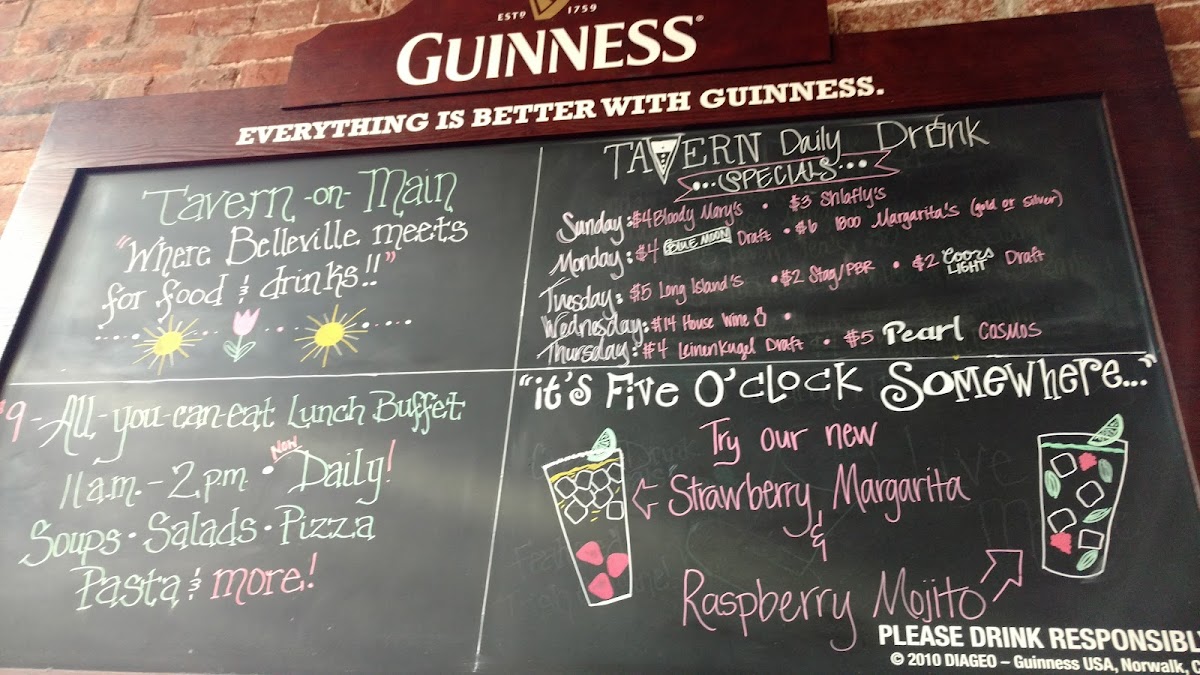 ESTD 1759
GUINNESS®
EVERYTHING IS BETTER WITH GUINNESS.
Tavern-on-Main
"Where Belleville meets
for food & drinks!!"
TAVERN Daily Drink
...SPECIALS...
Sunday: $4 Bloody Mary's • $3 Shlafly's
Monday: $4 BLUE MOON Draft • $6 1800 Margarita's (gold or silver)
Tuesday: $5 Long Island's • $2 Stag/PBR • $2 Coors LIGHT Draft
Wednesday: $14 House Wine •
Thursday: $4 Leinenkugel Draft • $5 Pearl COSMOS
$9 - All-you-can-eat Lunch Buffet
11a.m. - 2p.m. • Now Daily!
Soups • Salads • Pizza
Pasta & more!
"it's Five O'clock Somewhere..."
Try our new
Strawberry Margarita
&
Raspberry Mojito
PLEASE DRINK RESPONSIBL
© 2010 DIAGEO – Guinness USA, Norwalk, C